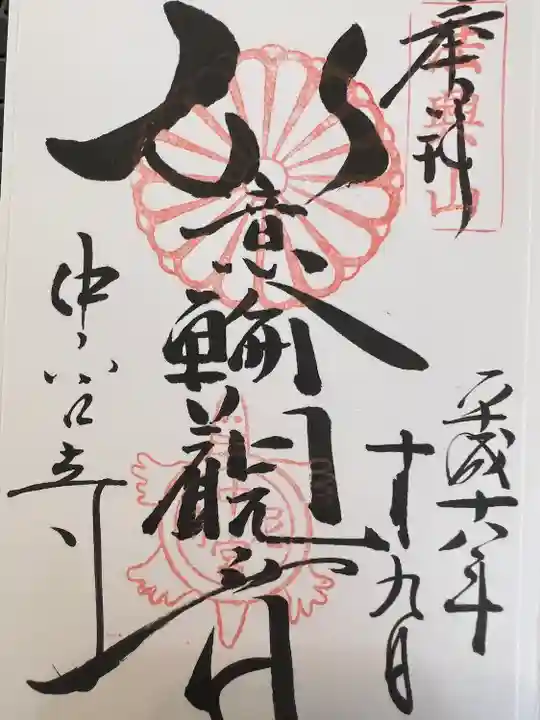 奉拝
法興山
平成十八年
十月九日
如意輪観音
中宮寺